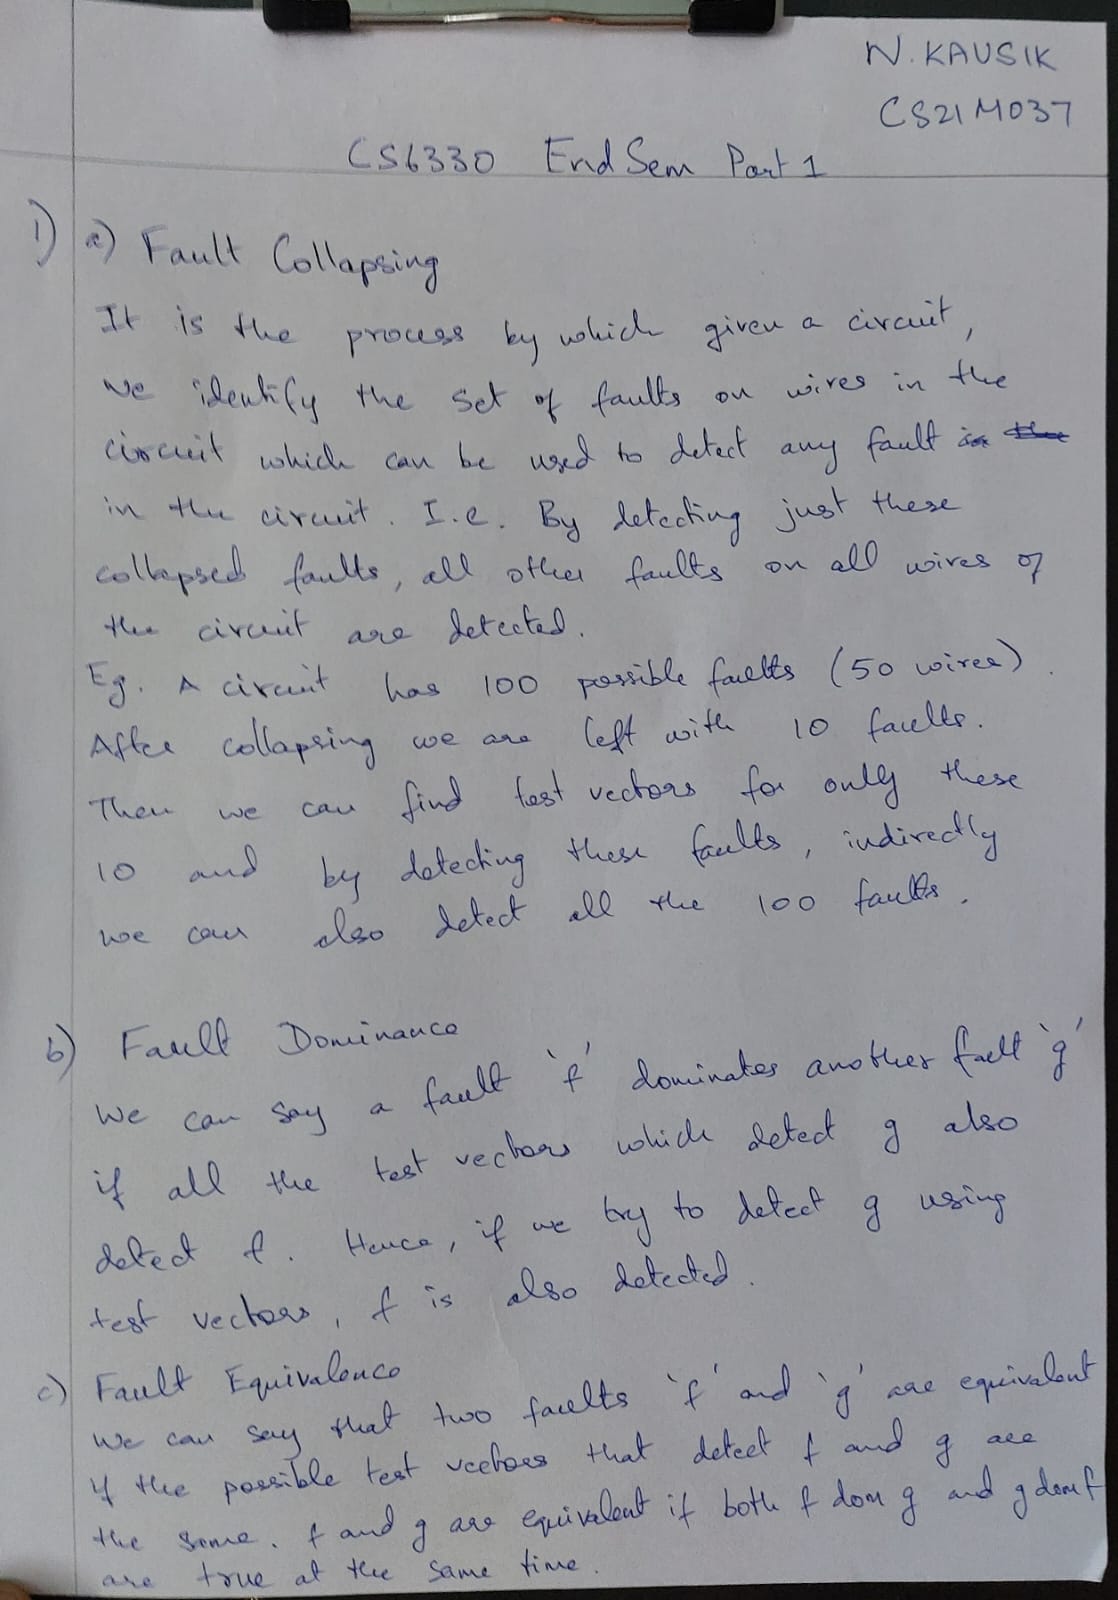 N. KAUSIK
CS21M037
CS6330 End Sem Part 1
1) a) Fault Collapsing
It is the process by which given a circuit,
we identify the set of faults on wires in the
circuit which can be used to detect any fault in the
in the circuit. I.e. By detecting just these
collapsed faults, all other faults on all wires of
the circuit are detected.
Eg. A circuit has 100 possible faults (50 wires).
After collapsing we are left with 10 faults.
Then we can find test vectors for only these
10 and by detecting these faults, indirectly
we can also detect all the 100 faults.
b) Fault Dominance
We can say a fault 'f' dominates another fault 'g'
if all the test vectors which detect g also
detect f. Hence, if we try to detect g using
test vectors, f is also detected.
c) Fault Equivalence
We can say that two faults 'f' and 'g' are equivalent
if the possible test vectors that detect f and g are
the same. f and g are equivalent if both f dom g and g dom f
are true at the same time.